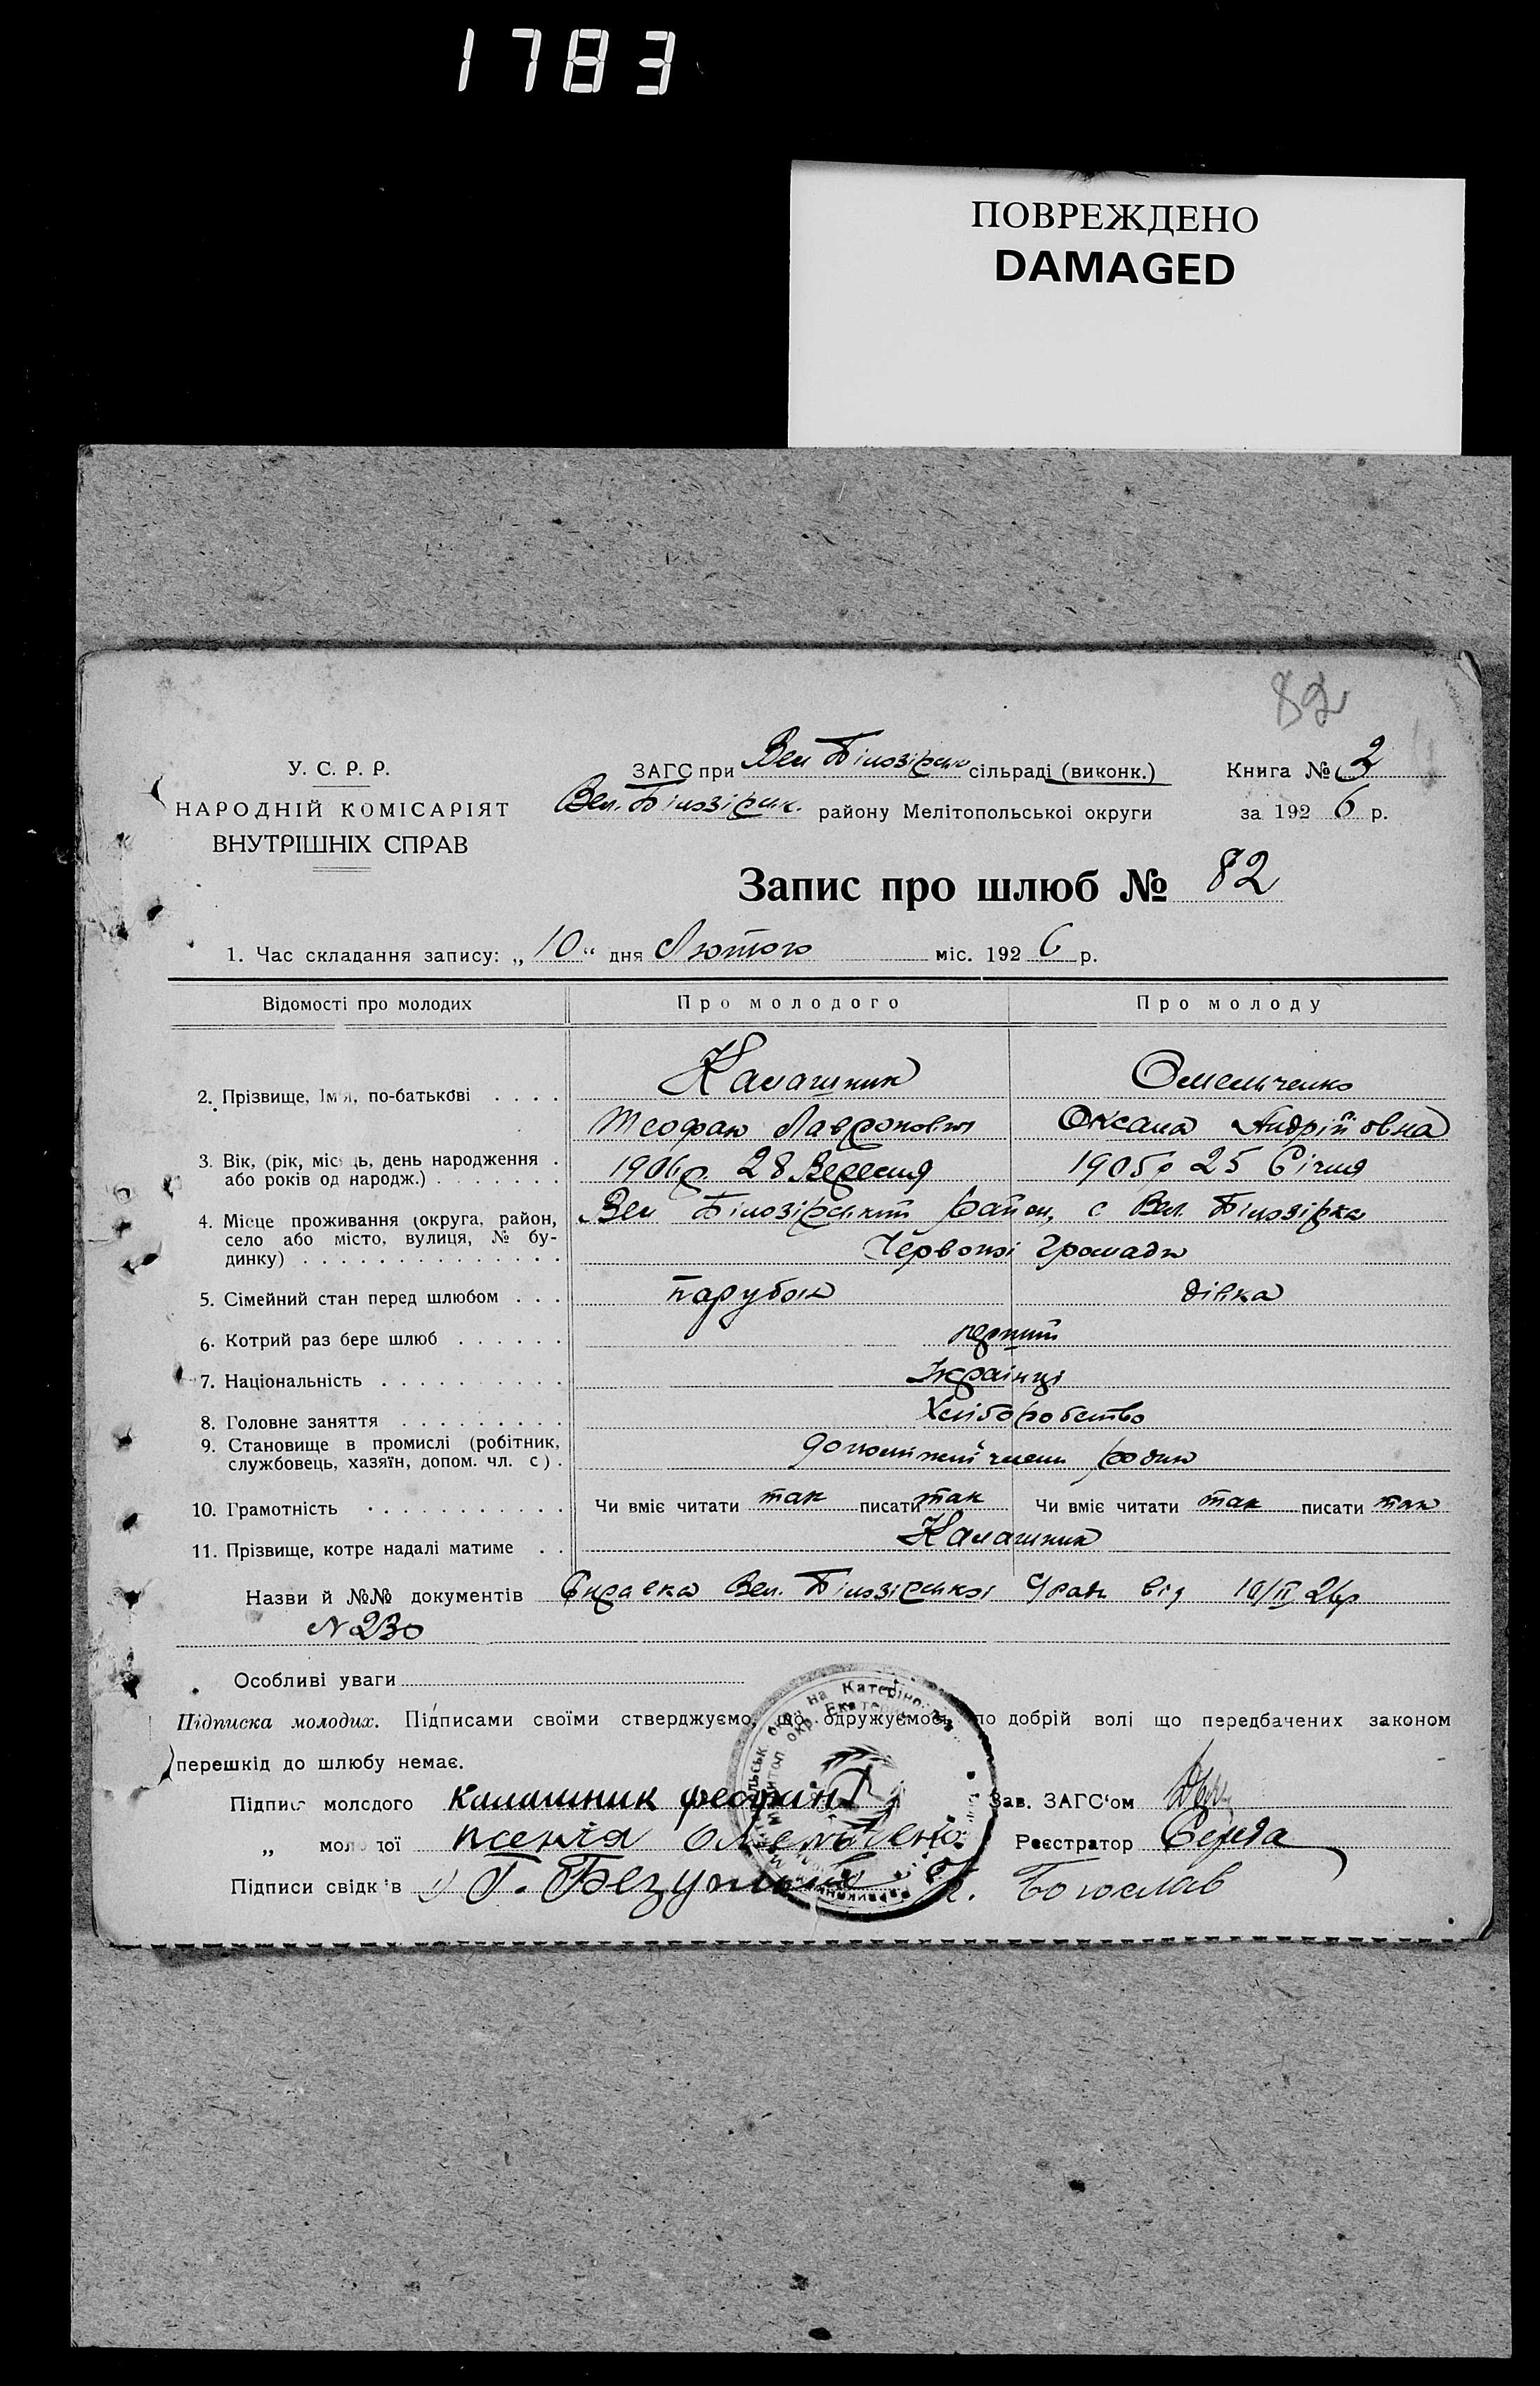 1783
ПОВРЕЖДЕНО
DAMAGED
82
У. С. Р. Р.
НАРОДНІЙ КОМІСАРІЯТ
ВНУТРІШНІХ СПРАВ
ЗАГС при Вел Білозірск сільраді (виконк.)
Вел. Білозірськ. району Мелітопольської округи
Книга № 2
за 1926 р.
Запис про шлюб № 82
1. Час складання запису: „10“ дня Лютого міс. 1926 р.
Відомості про молодих Про молодого Про молоду
2. Прізвище, Ім'я, по-батькові . . . . Калашник Омельченко
Теофан Лавронович Оксана Андрійовна
3. Вік, (рік, місяць, день народження . 1906р. 28 Вересня 1905р 25 Січня
або років од народж.) . . . . . . .
4. Місце проживання (округа, район, Вел Білозірський район, с Вел. Білозірка
село або місто, вулиця, № бу-
динку) . . . . . . . . . . . . . . Червоної Громади
5. Сімейний стан перед шлюбом . . . парубок дівка
6. Котрий раз бере шлюб . . . . . . перший
7. Національність . . . . . . . . . . Українці
8. Головне заняття . . . . . . . . . Хліборобство
9. Становище в промислі (робітник,
службовець, хазяїн, допом. чл. с) . допоміжний член родин
10. Грамотність . . . . . . . . . . . Чи вміє читати так писати так Чи вміє читати так писати так
11. Прізвище, котре надалі матиме . . Калашник
Назви й №№ документів Справка Вел. Білозірської від 10/II 26р
N 230
Особливі уваги
Підписка молодих. Підписами своїми стверджуємо, що одружуємось по добрій волі що передбачених законом
перешкід до шлюбу немає.
Підпис молодого Калашник феофан Зав. ЗАГС'ом
„ молодої Омельченко Реєстратор Середа
Підписи свідків 1) Г. Богослав